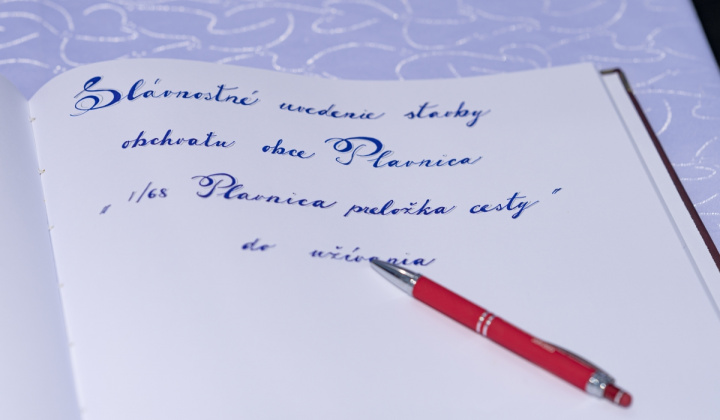 Slávnostné uvedenie stavby
obchvatu obce Plavnica
„ 1/68 Plavnica preložka cesty "
do užívania